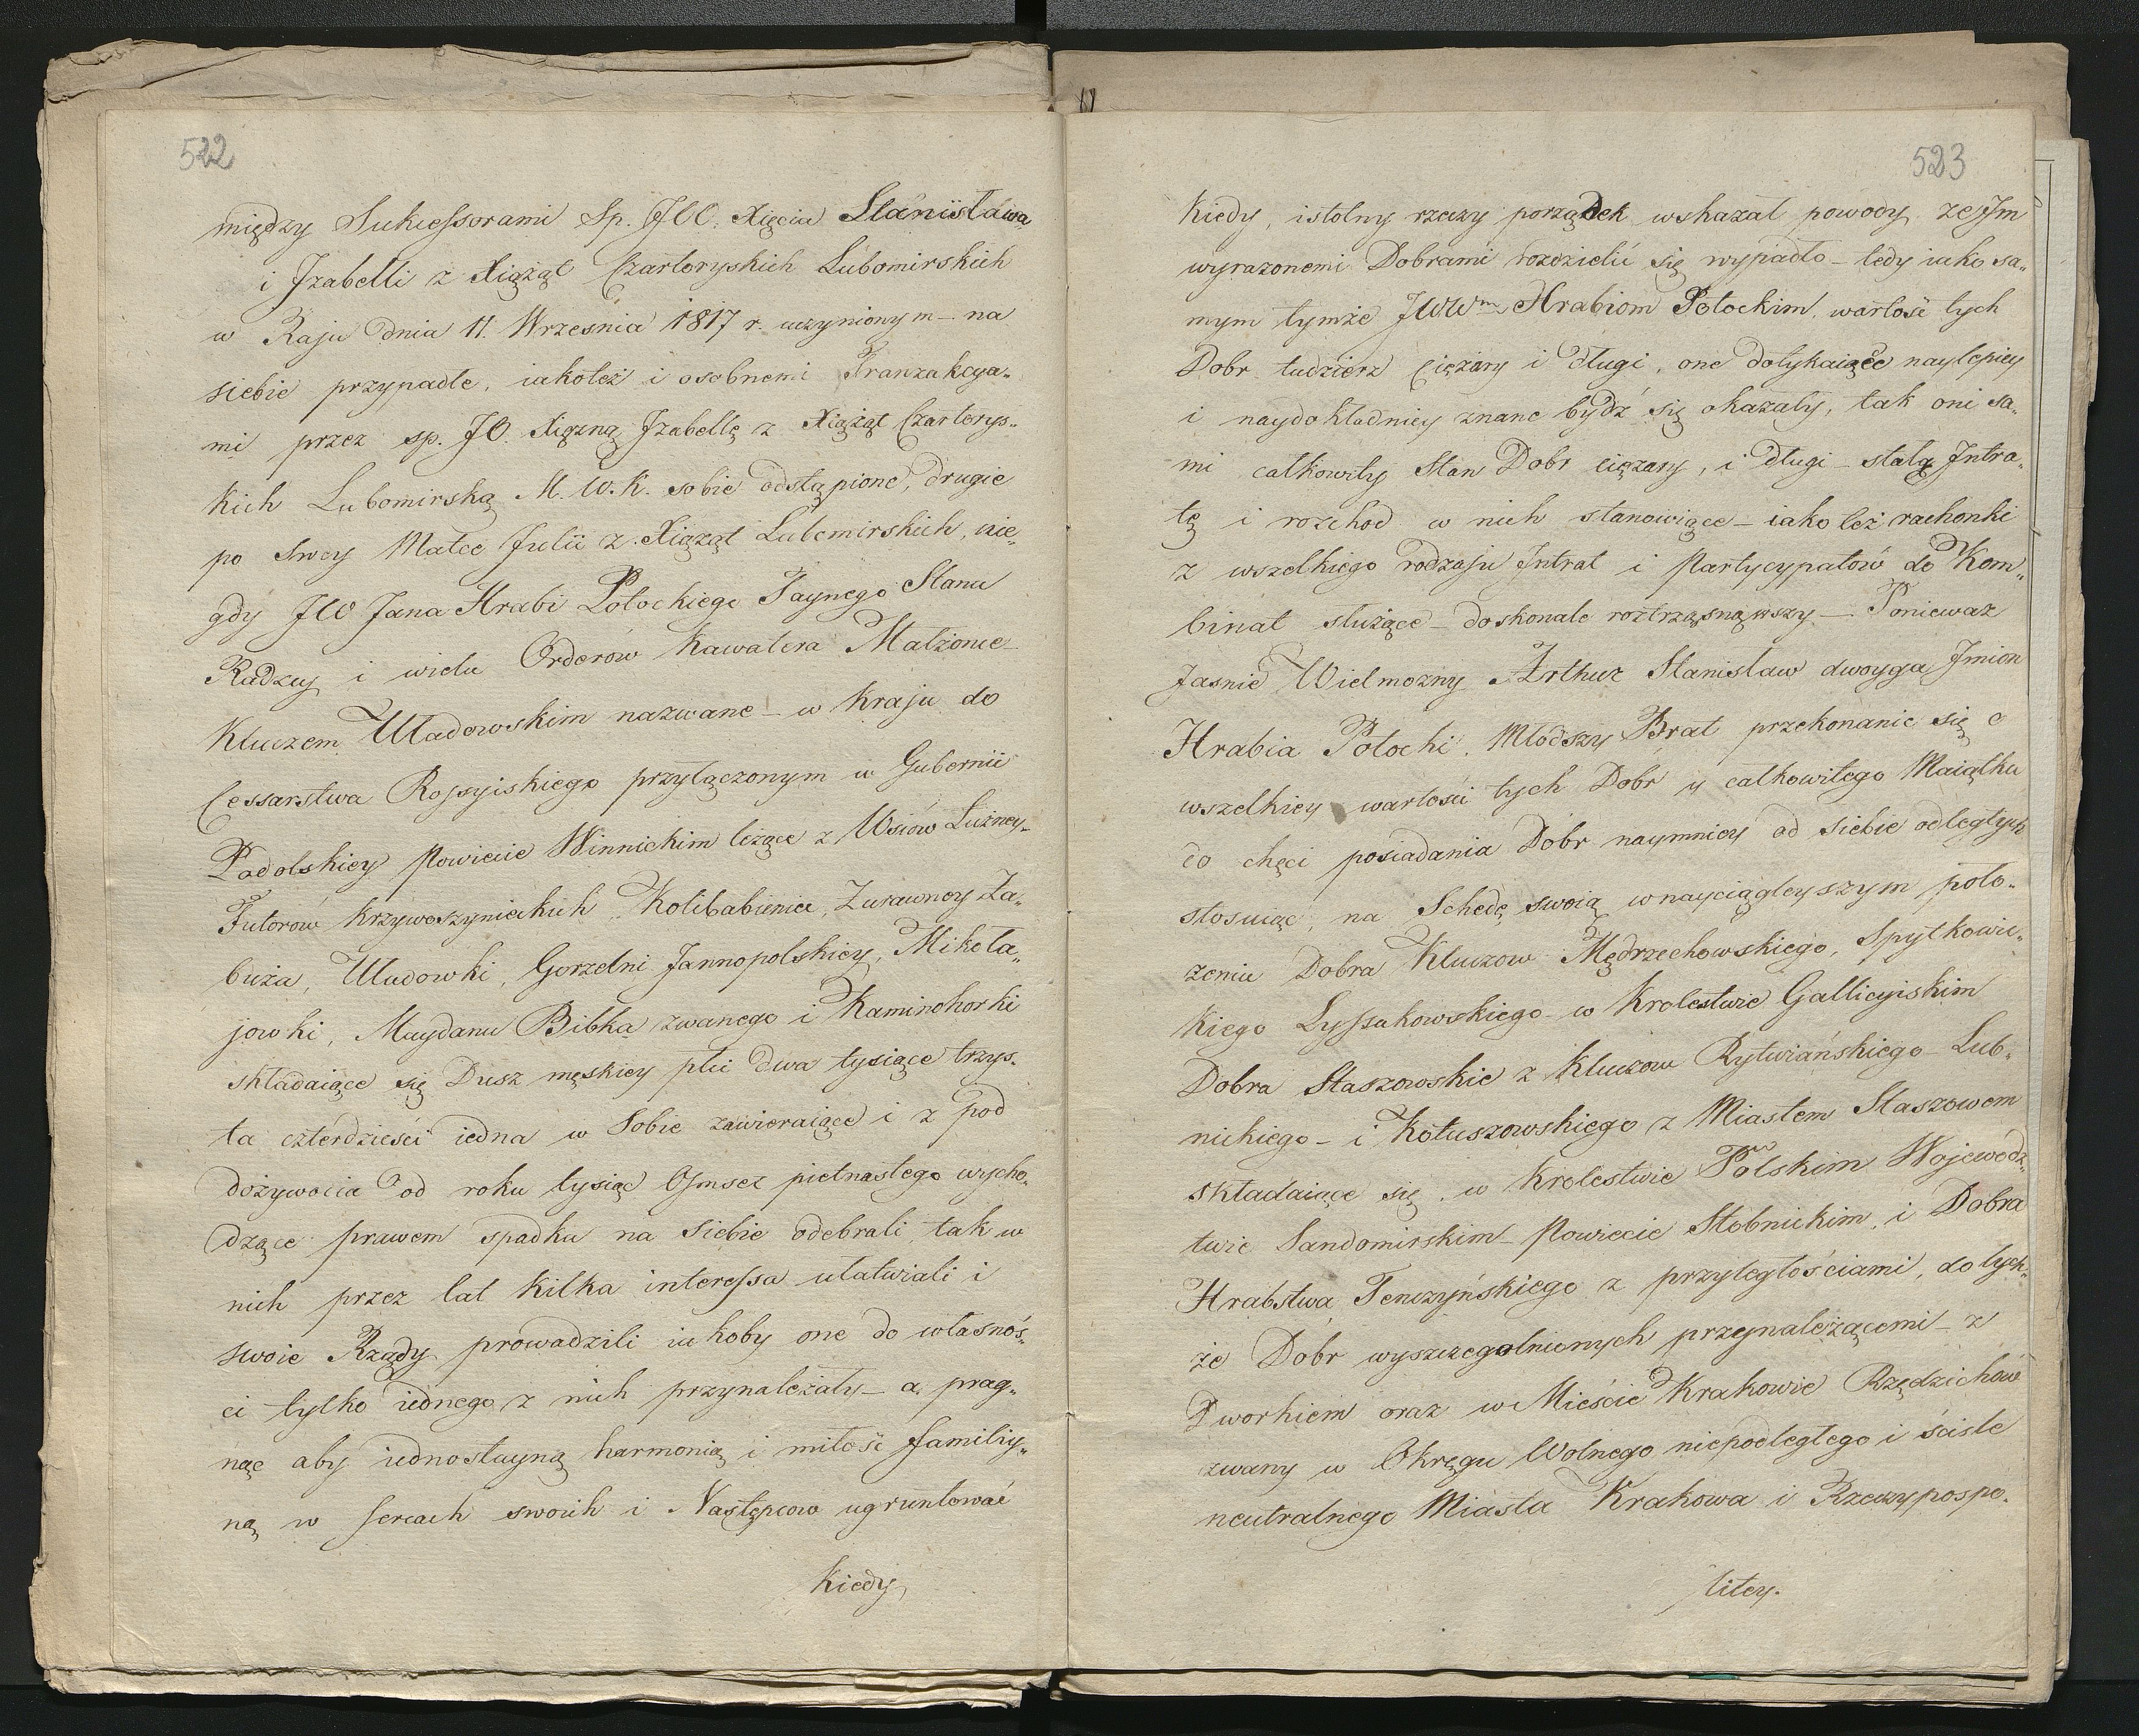 522
między Sukcessorami Sp. JOO. Xięcia Stanisława
i Izabelli z Xiążąt Czartoryskich Lubomirskich
w Raju dnia 11. Wrzesnia 1817 r. uczynionym – na
siebie przypadłe, iakoteż i osobnemi Tranzakcya„
mi przez sp. JO. Xiężną Izabellę z Xiążąt Czartorys„
kich Lubomirską M. W. K. sobie odstąpione, drugie
po Swey Matce Julii z Xiążąt Lubomirskich, nie„
gdy JW Jana Hrabi Potockiego Taynego Stanu
Radzcy i wielu Orderów Kawalera Małżonce
Kluczem Uładowskim nazwane – w Kraju do
Cessarstwa Rossyiskiego przyłączonym w Gubernii
Podolskiey Powiecie Winnickim leżące z Wsiów Łużney„
Futorów Krzywoszynieckich Kolibabieniec, Zurawney Za„
buża, Uładowki, Gorzelni Jannopolskiey, Mikoła„
jowki, Maydanu Bibka zwanego i Kaminohorki
składaiące się Dusz męskiey płci dwa tysiące trzys„
ta czterdzieści iedna w Sobie zawieraiące i z pod
dożywocia od roku tysiąc Osmset pietnastego wycho„
dzące prawem spadku na siebie odebrali, tak w
nich przez lat kilka interessa ułatwiali i
swoie Rządy prowadzili iakoby one do własnoś„
ci tylko iednego z nich przynależały – a prag„
nąc aby iednostayną harmonią i miłość familiy„
ną w sercach swoich i Następcow ugruntować
Kiedy
523
Kiedy, istotny rzeczy porządek wskazał powody ze Im
wyrazonemi Dobrami rozdzielić się wypadło – tedy iako sa„
mym tymże JWWm Hrabiom Potockim, wartość tych
Dobr tudzierz Ciężary i długi, one dotykaiące naylepiey
i naydokładniey znane bydź się okazały, tak oni sa„
mi całkowity Stan Dobr ciężary, i długi – stałą Intra„
tę i rozchod w nich stanowiące – iako też rachonki
z wszelkiego rodzaju Intrat i Partycypatów do Kom„
binat służące – doskonale roztrząsnąwszy – Ponieważ
Jasnie Wielmozny Arthur Stanisław dwoyga Imion
Hrabia Potocki, Młodszy Brat przekonanie się o
wszelkiey wartości tych Dobr y całkowitego Maiątku
do chęci posiadania Dobr naymniey od siebie odległych
stosuiąc, na Schedę swoią w nayciągleyszym poło„
żeniu Dobra Kluczow Mędrzechowskiego, Spytkowic„
kiego Lyssakowskiego w Krolestwie Gallicyiskim
Dobra Staszowskie z Kluczow Rytwiańskiego Łub„
nickiego – i Kotuszowskiego z Miastem Staszowem
składaiące się w Krolestwie Polskim Wojewodz„
twie Sandomirskim – Powiecie Stobnickim, i Dobra
Hrabstwa Tenczyńskiego z przyległościami, do tych„
że Dobr wyszczegolnionych przynależącemi – z
Dworkiem oraz w Mieście Krakowie Rzędzichów
zwany w Okręgu Wolnego niepodległego i ściśle
neutralnego Miasta Krakowa i Rzeczypospo„
litey.